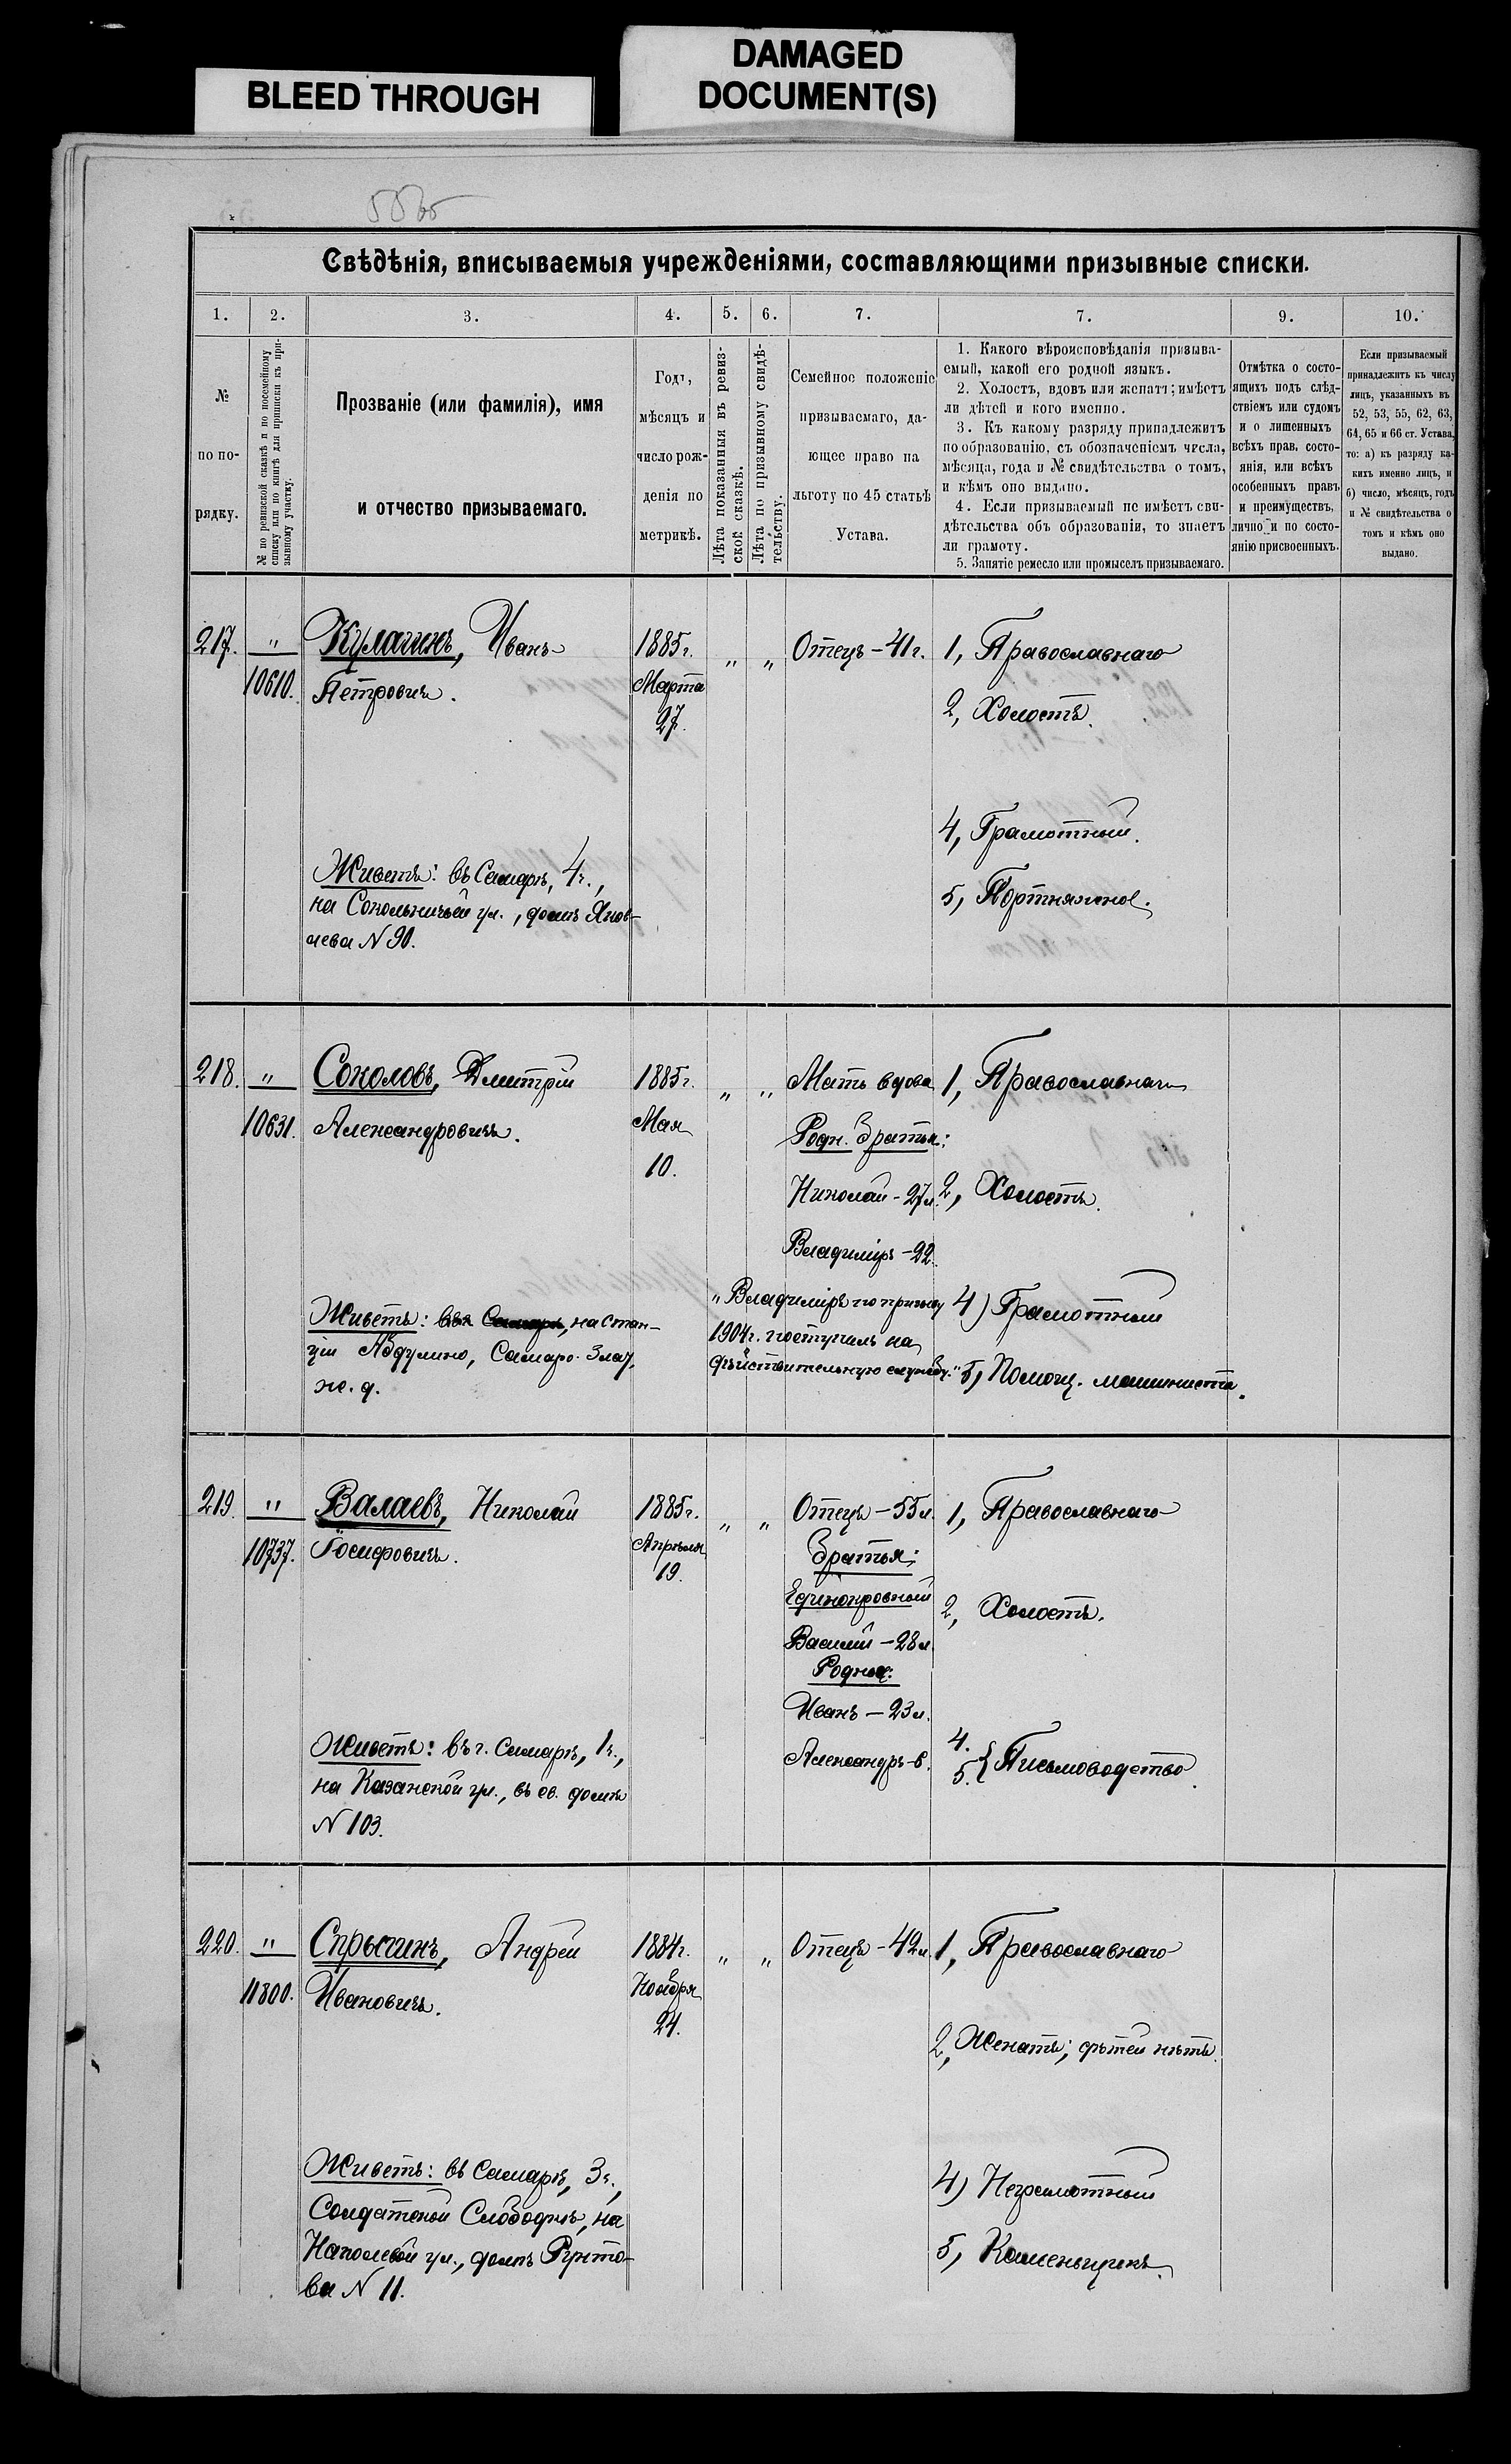 BLEED THROUGH
DAMAGED
DOCUMENT(S)
Свѣдѣнія, вписываемыя учрежденіями, составляющими призывные списки.
1. 2. 3. 4. 5. 6. 7. 7. 9. 10.
№
по по-
рядку.
№ по ревизской сказкѣ и по посемейному
списку или по книгѣ для приписки къ при-
зывному участку.
Прозваніе (или фамилія), имя
и отчество призываемаго.
Годъ,
мѣсяцъ и
число рож-
денія по
метрикѣ.
Лѣта показанныя въ ревиз-
ской сказкѣ.
Лѣта по призывному свидѣ-
тельству.
Семейное положеніе
призываемаго, да-
ющее право на
льготу по 45 статьѣ
Устава.
1. Какого вѣроисповѣданія призыва-
емый, какой его родной языкъ.
2. Холостъ, вдовъ или женатъ; имѣетъ
ли дѣтей и кого именно.
3. Къ какому разряду принадлежитъ
по образованію, съ обозначеніемъ числа,
мѣсяца, года и № свидѣтельства о томъ,
и кѣмъ оно выдано.
4. Если призываемый не имѣетъ сви-
дѣтельства объ образованіи, то знаетъ
ли грамоту.
5. Занятіе ремесло или промыселъ призываемаго.
Отмѣтка о состо-
ящихъ подъ слѣд-
ствіемъ или судомъ
и о лишенныхъ
всѣхъ прав, состо-
янія, или всѣхъ
особенныхъ правъ
и преимуществъ,
лично и по состо-
янію присвоенныхъ.
Если призываемый
принадлежитъ къ числу
лицъ, указанныхъ въ
52, 53, 55, 62, 63,
64, 65 и 66 ст. Устава,
то: а) къ разряду ка-
кихъ именно лицъ, и
б) число, мѣсяцъ, годъ
и № свидѣтельства о
томъ и кѣмъ оно
выдано.
217. " Кулагинъ, Иванъ 1885г. " " Отецъ - 41г. 1, Православнаго
10610. Петровичъ. Марта
27. 2, Холостъ.
4, Грамотный.
Живетъ: въ Самарѣ, 4ч.,
на Сокольничьей ул., домъ
№ 90.
5, Портняжное.
218. " Соколовъ, Дмитрій 1885г. " " Мать вдова 1, Православнаго
10631. Александровичъ. Мая Родн. братья:
10. Николай - 27л. 2, Холостъ.
Владиміръ - 22.
Живетъ: на стан-
ціи Абдулино, Самаро-Злат.
ж. д.
"Владиміръ по призыву
1904г. поступилъ на
дѣйствительную службу."
4) Грамотный
5, Помощ. машиниста.
219. " Валаевъ, Николай 1885г. " " Отецъ - 55л. 1, Православнаго
10737. Іосифовичъ. Апрѣля Братья:
19. Единокровный 2, Холостъ.
Василій - 28л.
Родные:
Иванъ - 23л.
Александръ - 6.
Живетъ: въ г. Самарѣ, 1ч.,
на Казанской ул., въ св. домѣ
№ 103.
4.
5. } Письмоводство
220. " Спрыгинъ, Андрей 1884г. " " Отецъ - 42л. 1, Православнаго
11800. Ивановичъ. Ноября
24. 2, Женатъ; дѣтей нѣтъ.
Живетъ: въ Самарѣ, 3ч.,
Солдатской Слободкѣ, на
Наполевой ул., домъ Рунто-
ва № 11.
4) Неграмотный
5, Каменьщикъ.